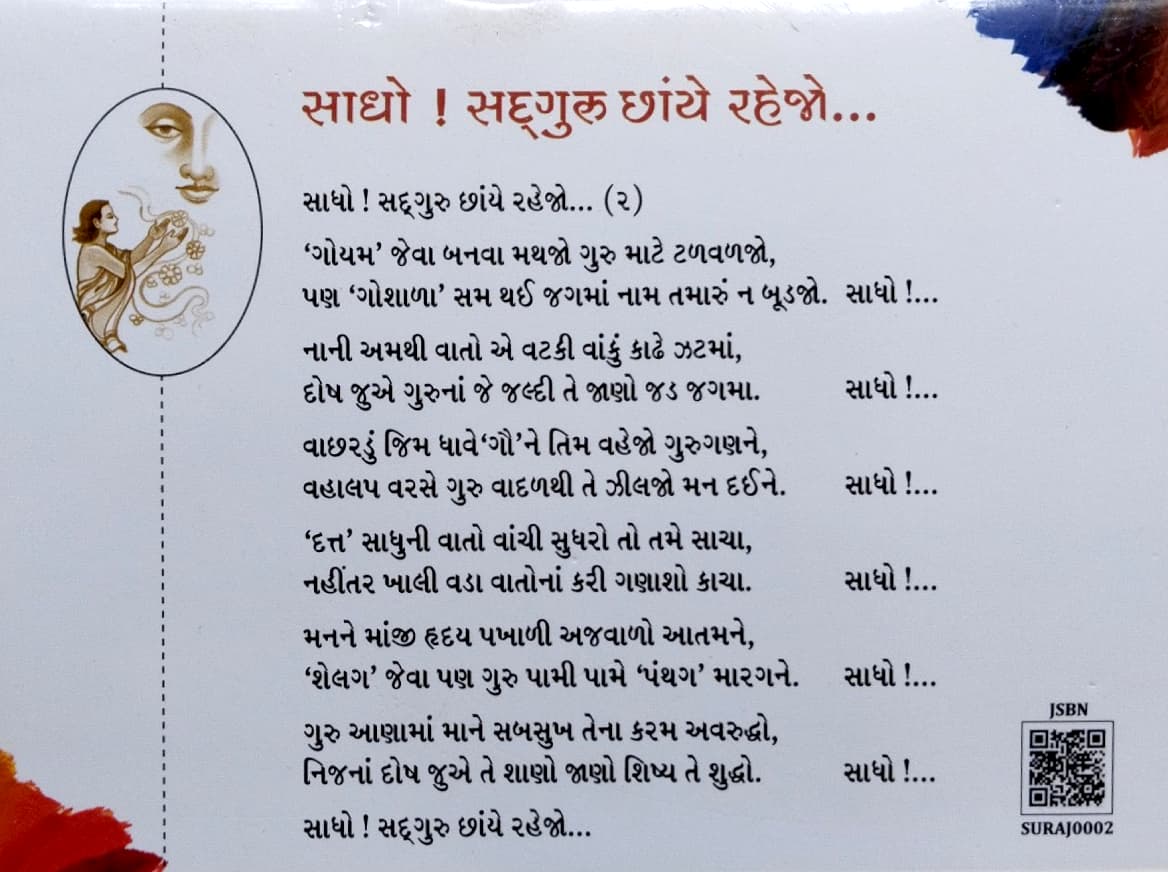 સાધો ! સદ્‌ગુરુ છાંયે રહેજો...
સાધો ! સદ્‌ગુરુ છાંયે રહેજો... (૨)
‘ગોયમ’ જેવા બનવા મથજો ગુરુ માટે ટળવળજો,
પણ ‘ગોશાળા’ સમ થઈ જગમાં નામ તમારું ન બૂડજો. સાધો !...
નાની અમથી વાતો એ વટકી વાંકું કાઢે ઝટમાં,
દોષ જુએ ગુરુનાં જે જલ્દી તે જાણો જડ જગમા. સાધો !...
વાછરડું જિમ ધાવે‘ગૌ’ને તિમ વહેજો ગુરુગણને,
વહાલપ વરસે ગુરુ વાદળથી તે ઝીલજો મન દઈને. સાધો !...
‘દત્ત’ સાધુની વાતો વાંચી સુધરો તો તમે સાચા,
નહીંતર ખાલી વડા વાતોનાં કરી ગણાશો કાચા. સાધો !...
મનને માંજી હૃદય પખાળી અજવાળો આતમને,
‘શેલગ’ જેવા પણ ગુરુ પામી પામે ‘પંથગ’ મારગને. સાધો !...
ગુરુ આણામાં માને સબસુખ તેના કરમ અવરુદ્ધો,
નિજનાં દોષ જુએ તે શાણો જાણો શિષ્ય તે શુદ્ધો. સાધો !...
સાધો ! સદ્‌ગુરુ છાંયે રહેજો...
JSBN
SURAJ0002